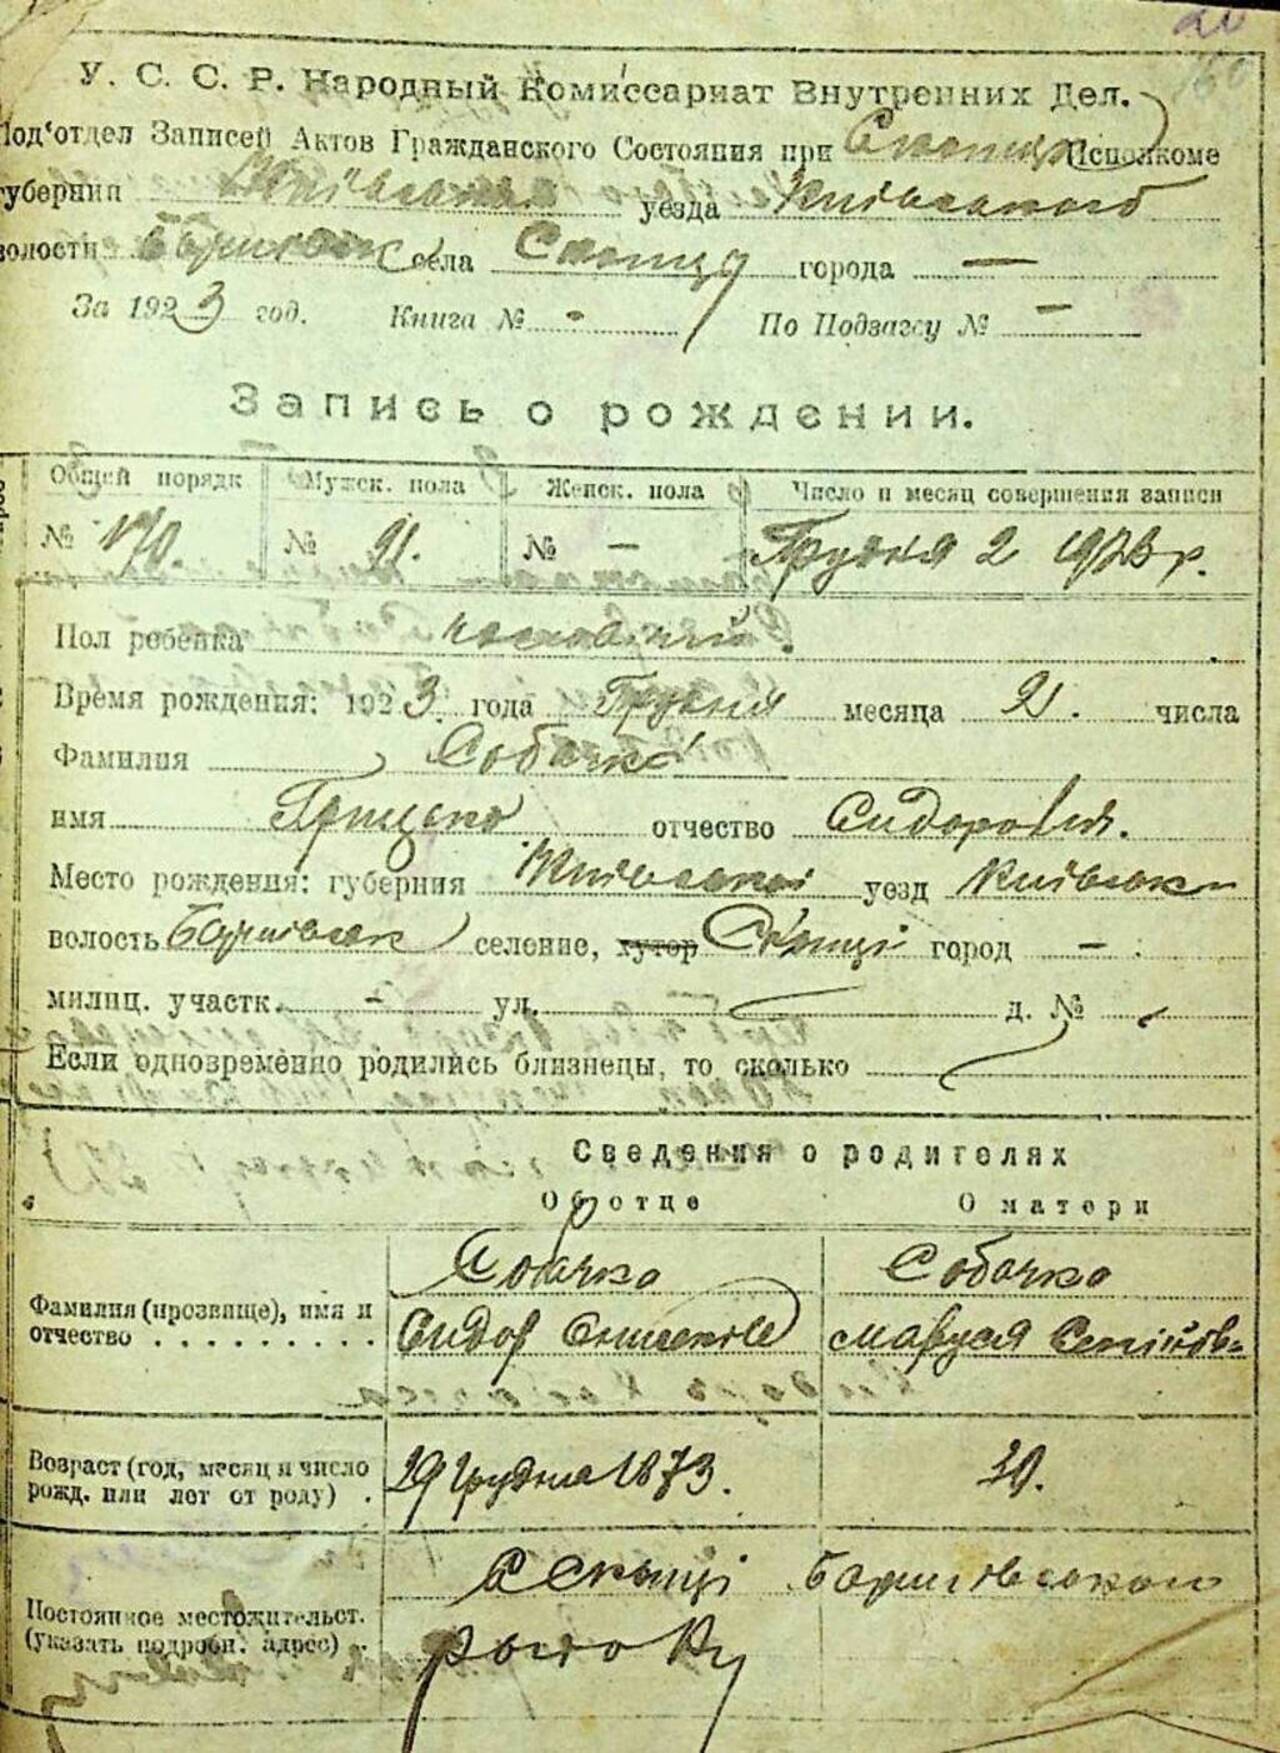 У. С. С. Р. Народный Комиссариат Внутренних Дел.
Под'отдел Записей Актов Гражданского Состояния при Исполкоме
губернии Київської уезда Київського
волости села Скопцы города —
За 1923 год. Книга № - По Подзагсу № —
Запись о рождении.
Общей порядк Мужск. пола Женск. пола Число и месяц совершения записи
№ 170. № 91. № — Грудня 2 1923 р.
Пол ребенка
Время рождения: 1923. года Грудня месяца числа
Фамилия Собачко
имя Грицько отчество Сидорович.
Место рождения: губерния Київської уезд Київськ
волость селение, хутор Скопці город —
милиц. участк. - ул. д. №
Если одновременно родились близнецы, то сколько
Сведения о родителях
Об отце О матери
Собачко Собачко
Фамилия (прозвище), имя и
отчество . . . . . . . . . Сидор Маруся
Возраст (год, месяц и число
рожд. или лет от роду) . 29 грудня 1873. 30.
С Скопці
Постоянное местожительст.
(указать подробн. адрес) . району